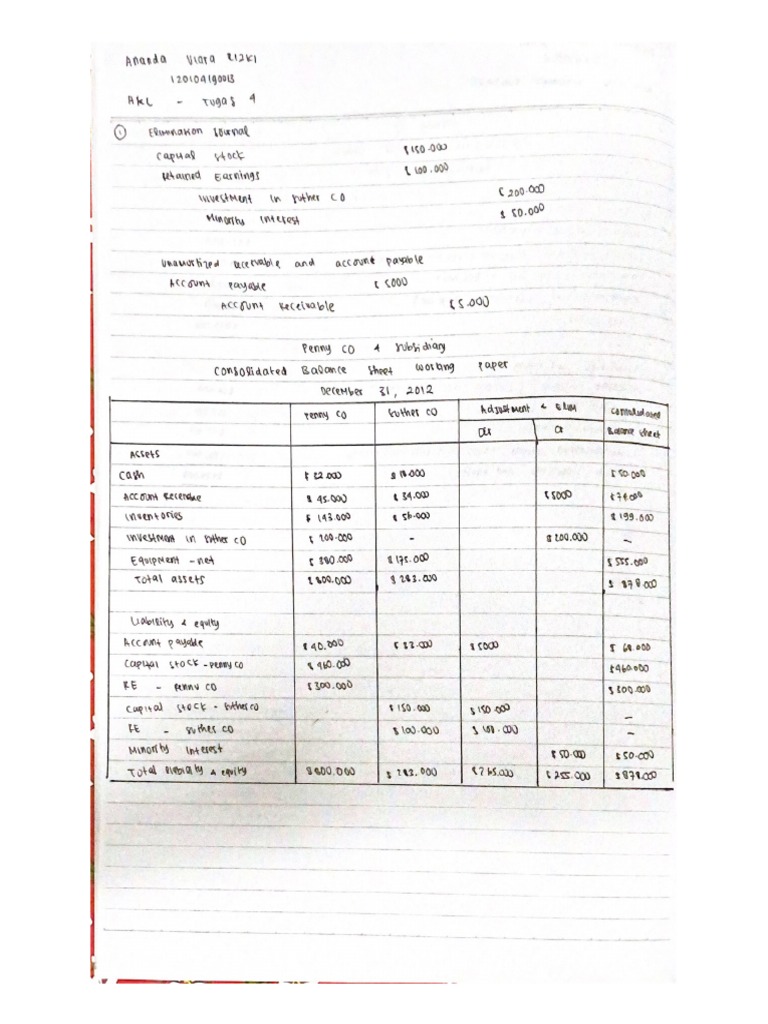 Ananda Viara Rizki
120104190013
AKL - Tugas 4
① Elimination Journal
Capital Stock $150.000
Retained Earnings $100.000
Investment in Suther CO $200.000
Minority Interest $50.000
receivable and account payable
Account Payable $5000
Account Receivable $5.000
Penny CO & Subsidiary
Consolidated Balance Sheet Working Paper
December 31, 2012
Penny CO Suther CO Adjustment & Elim Consolidated
Balance Sheet
Assets
Cash $18.000 $50.000
Account Receivable $45.000 $34.000 $5000 $74.000
Inventories $143.000 $56.000 $199.000
Investment in Suther CO $200.000 - $200.000 -
Equipment - net $380.000 $175.000 $555.000
Total assets $800.000 $283.000 $878.000
Liability & equity
Account payable $40.000 $33.000 $5000 $68.000
Capital Stock - Penny CO $460.000 $460.000
RE - Penny CO $300.000 $300.000
Capital Stock - Suther CO $150.000 $150.000 -
RE - Suther CO $100.000 -
Minority Interest $50.000 $50.000
Total & equity $800.000 $283.000 $255.000 $878.000